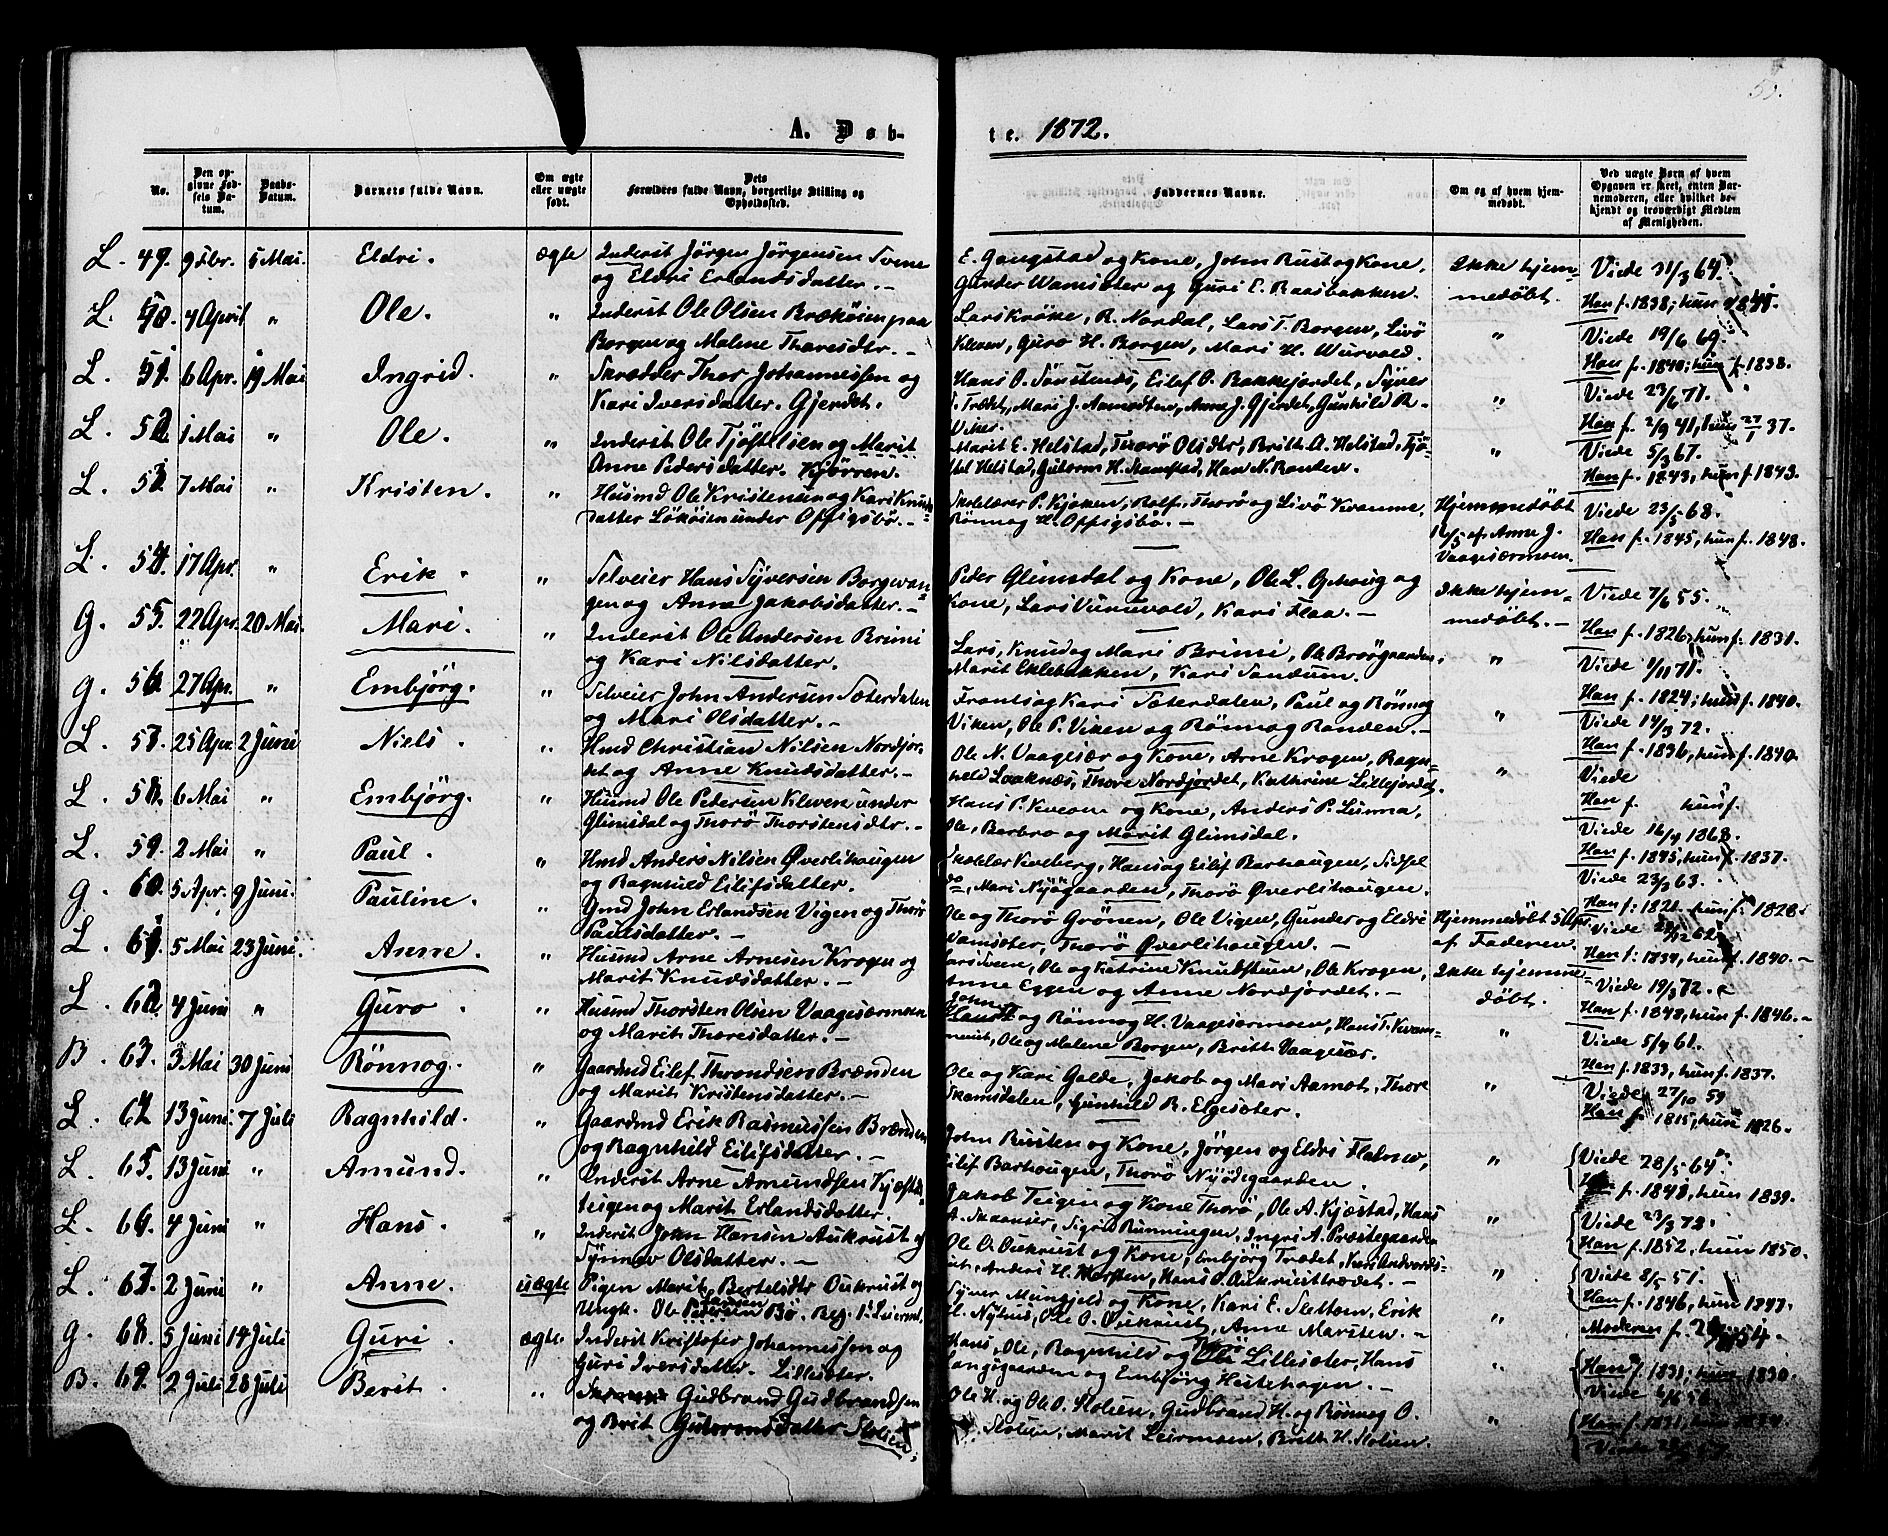 A. Døb-
te. 1872.
No.
Den opgivne Fødsels Datum.
Daabs-Datum.
Barnets fulde Navn.
Om ægte eller uægte født.
Dets Forældres fulde Navn, borgerlige Stilling og Opholdssted.
Faddernes Navne.
Om og af hvem hjemmedøbt.
Ved uægte Børn af hvem Opgaven er skeet, enten Barnemoderen, eller hvilket bekjendt og troværdigt Medlem af Menigheden.
L. 49. 5 Mai. Eldri. ægte Inderst Jörgen Jörgensen Svene
og Eldri Erlandsdatter.
E. Gangstad og Kone, John Rusten og Kone,
Gunder Vamsöter og Guri E. Raasbakken.
Ikke hjem=
medøbt.
Viede 31/3 64.
L. 50. 4 April " Ole. " Inderst Ole Olsen Bræköien paa
Borgen og Malene Thoresdtr.
Lars Kröke, R. Nordal, Lars T. Borgen, Livö
Kleven, Guro H. Borgen, Mari H.
" Viede 19/6 69.
Han f. 1840; hun f. 1838.
L. 51. 6 Apr. 19 Mai Ingrid. " Skrædder Thor Johannessen og
Kari Iversdatter. Gjerdet.
Hans O. Eilef O. Bakkejordet, Syver
Trædet, Mari J. Anne J. Gjerdet, Gunhild R.
" Viede 23/6 71.
Han f. 2/9 41, hun 27/1 37.
L. 52. 1 Mai " Ole. " Inderst Ole Tjöstelsen og Marit
Anne Pedersdatter. Kjörren.
Marit E. Helstad, Thorö Olsdtr, Britt A. Helstad, Tjö=
stel Helstad, Guttorm H.
" Viede 5/3 67.
Han f. 1843, hun f. 1843.
L. 53. 7 Mai " Kristen. " Husmd Ole Kristensen og Kari Knuds=
datter Lököien under Offigsbö.
Skolelærer P. Kjöken, Rolf, Thorö og Livö Kvamme,
Rönnog H. Offigsbö.
Hjemmedøbt
af Anne J.
Vaagesærmoen.
Viede 23/5 68.
Han f. 1845, hun f. 1848.
L. 54. 17 Apr. " Erik. " Selveier Hans Syversen Borgevan=
gen og Anne Jakobsdatter.
Peder Glimsdal og Kone, Ole L. og
Kone, Lars Kari Flaa.
Ikke hjem=
medøbt.
Viede 7/6 55.
Han f. 1826, hun f. 1831.
G. 55. 22 Apr. 20 Mai. Mari. " Inderst Ole Andersen Brimi
og Kari Nilsdatter.
Lars, Knud og Mari Brimi, Ole
Marit Eklebakken, Kari Sandum.
" Viede 71.
Han f. 1824; hun f. 1840.
G. 56. 27 Apr. " Embjörg. " Selveier John Andersen Sæterdalen
og Mari Olsdatter.
Frants og Kari Sæterdalen, Paul og Rönnog
Viken, Ole P. Viken og Rönnog Randen.
" Viede 14/3 72.
Han f. 1836, hun f. 1840.
L. 57. 25 Apr. 2 Juni Niels. " Hmd Christian Nilsen Nordjor=
det og Anne Knudsdatter.
Ole N. Vaagesær og Kone, Arne Krogen, Ragn=
hild Thore Nordjordet, Kathrine Lillejordet.
" Viede
Han f. hun f.
L. 58. 6 Mai " Embjörg. " Husmd Ole Pedersen Kleven under
Glimsdal og Thorö Thorstensdtr.
Hans P. og Kone, Anders P.
Ole, Barbro og Marit Glimsdal.
Viede 16/4 1868.
Han f. 1845, hun f. 1837.
L. 59. 2 Mai " Paul. " Hmd Anders Nilsen Øverlihaugen
og Ragnhild Eilifsdatter.
Hans og Eilif Barhaugen, Sidsel
do, Mari Nyögaarden, Thorö Øverlihaugen.
Viede 23/3 63.
Han f. hun f. 1828.
G. 60. 5 Apr. 9 Juni. Pauline. " Gmd John Erlandsen Vigen og Thorö
Paulsdatter.
Ole og Thorö Grönen, Ole Vigen, Gunder og Eldri
Vamsöter, Thorö Øverlihaugen.
Hjemmedøbt 5 Apr.
af Faderen.
Han f. 1834, hun f. 1840.
L. 61. 5 Mai 23 Juni. Anne. " Husmd Arne Arnesen Krogen og
Marit Knudsdatter.
Lars Sveen, Ole og Katrine Knudstuen, Ole Krogen,
Anne Eggen og Anne Nordjordet.
Ikke hjemme=
døbt.
Viede 19/3 72.
Han f. 1848, hun f. 1846.
L. 62. 4 Juni " Guro " Husmd Thorsten Olsen Vaagesærmoen
og Marit Thoresdatter.
og Rönnog H. Vaagesærmoen, Hans T. Kvam=
Ole og Malene Borgen, Britt Vaagesær.
" Viede 5/4 61.
Han f. 1833, hun f. 1837.
B. 63. 3 Mai 30 Juni Rönnog. " Gaardmd Eilef Throndsen Brænden
og Marit Kristensdatter.
Ole og Kari Galde, Jakob og Mari Aamot, Thore
Skamsdalen, Gunhild R. Elgesöter.
" Viede 27/10 59
Han f. 1815, hun 1826.
L. 64. 13 Juni. 7 Juli Ragnhild. " Gaardmd Erik Rasmussen Brænden
og Ragnhild Eilifsdatter.
John Rusten og Kone, Jörgen og Eldri
Eilif Barhaugen, Thorö Nyödegaarden.
" Viede 28/5 64
hun 1839.
L. 65. 13 Juni " Amund. " Inderst Arne Amundsen Kjæstad=
teigen og Marit Erlandsdatter.
Jakob Teigen og Kone Thorö, Ole A. Kjæstad, Hans
A. Skaanser, Sigrid Runningen, Ingri A. Præstegaarden
" Viede 23/3 72.
Han f. 1852, hun 1850.
L. 66. 4 Juni " Hans. " Inderst John Hansen Aukrust og
Synnev Olsdatter.
Ole O. Oukrust og Kone, Embjörg Trædet, Kari
Anders H. Hans O. Aukrusttrædet.
" Viede 8/5 51.
Han f. 1846, hun 1847.
L. 67. 2 Juni " Anne. uægte Pigen Marit Bertelsdtr Oukrust og
Ungk. Ole Bø. Beg. 1ste Leierml.
Syver Mungjeld og Kone, Kari E. Slettom, Erik
H. Nyhus, Ole O. Oukrust, Anne Marsten.
Moderen f.
G. 68. 5 Juni 14 Juli Guri. ægte. Inderst Kristofer Johannessen og
Guri Iversdatter. Lillesöter.
Hans, Ole, Ragnhild og Lillesöter, Hans
Gangsgaarden og Embjörg Heitehagen.
" Han f. 1831; hun 1830.
B. 69. 2 Juli 28 Juli Berit. " Gudbrand Gudbrandsen
og Brit Guttormsdatter Stolien.
Ole H. og Ole O. Stolien, Gudbrand H. og Rönnog O.
Stolien, Marit Leirmoen, Britt H. Stolien.
" Han f. 1831, hun 1834